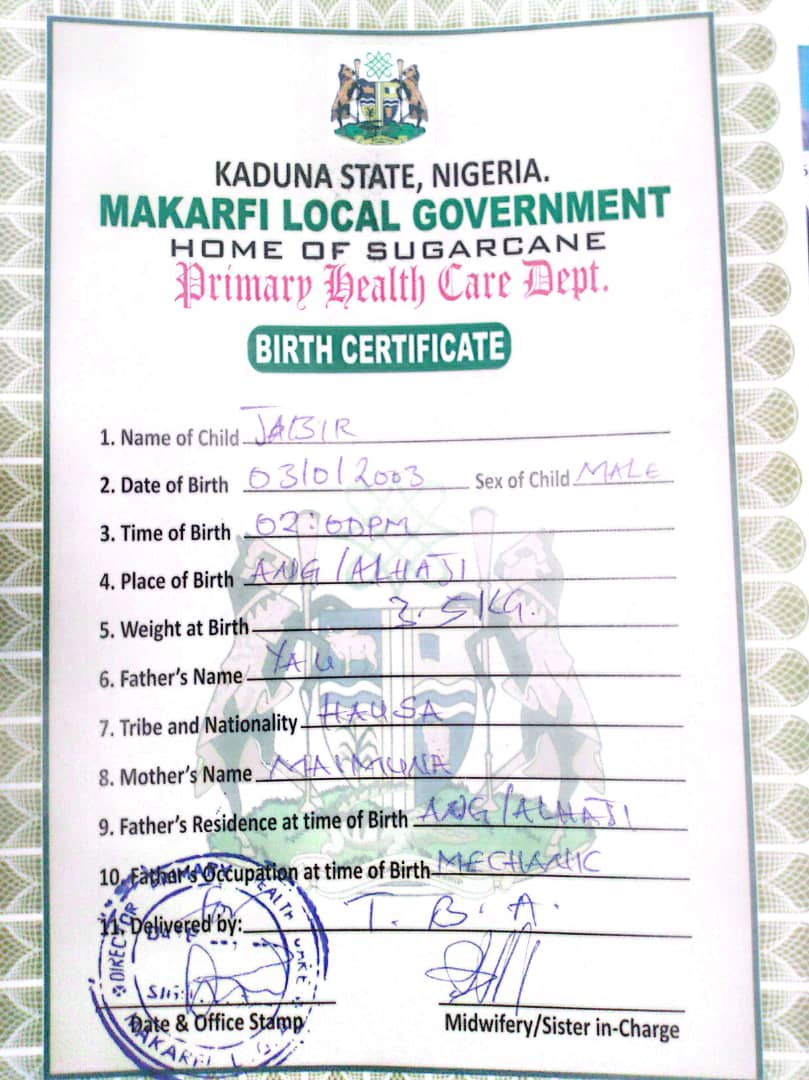 KADUNA STATE, NIGERIA.
MAKARFI LOCAL GOVERNMENT
HOME OF SUGARCANE
Primary Health Care Dept.
BIRTH CERTIFICATE
1. Name of Child JABIR
2. Date of Birth 03/0/2003 Sex of Child MALE
3. Time of Birth 02:00PM
4. Place of Birth ANG/ALHAJI
5. Weight at Birth 3.5KG.
6. Father's Name YAU
7. Tribe and Nationality HAUSA
8. Mother's Name MAIMUNA
9. Father's Residence at time of Birth ANG/ALHAJI
10. Father's Occupation at time of Birth MECHANIC
11. Delivered by: T.B.A.
Date & Office Stamp Midwifery/Sister in-Charge
DIRECTOR PRIMARY HEALTH CARE
DATE
MAKARFI L.G.A